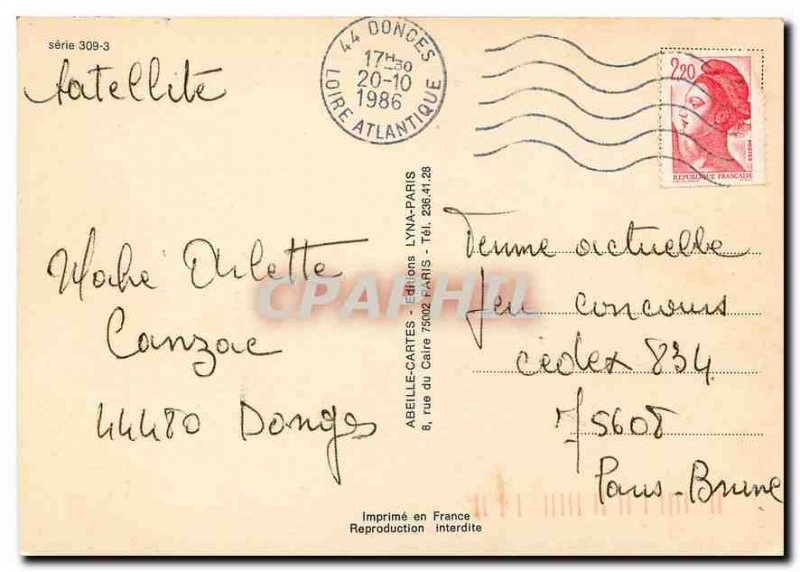 série 309-3
Satellite
44 DONGES
17H30
20-10
1986
LOIRE ATLANTIQUE
2,20
POSTES
REPUBLIQUE FRANÇAISE
Mahé Arlette
Canzac
44480 Donges
ABEILLE-CARTES - Editions LYNA-PARIS
8, rue du Caire 75002 PARIS - Tél. 236.41.28
Femme actuelle
Jeu concours
cedex 834
75608
Paris-Brune
CPAPHIL
Imprimé en France
Reproduction interdite